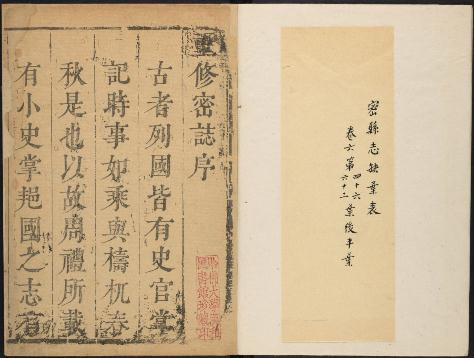 密縣志缺葉表
卷六第四十六
六十二葉後半葉
重修密誌序
古者列國皆有史官掌
記時事如乘與檮杌春
秋是也以故周禮所載
有小史掌邦國之志有